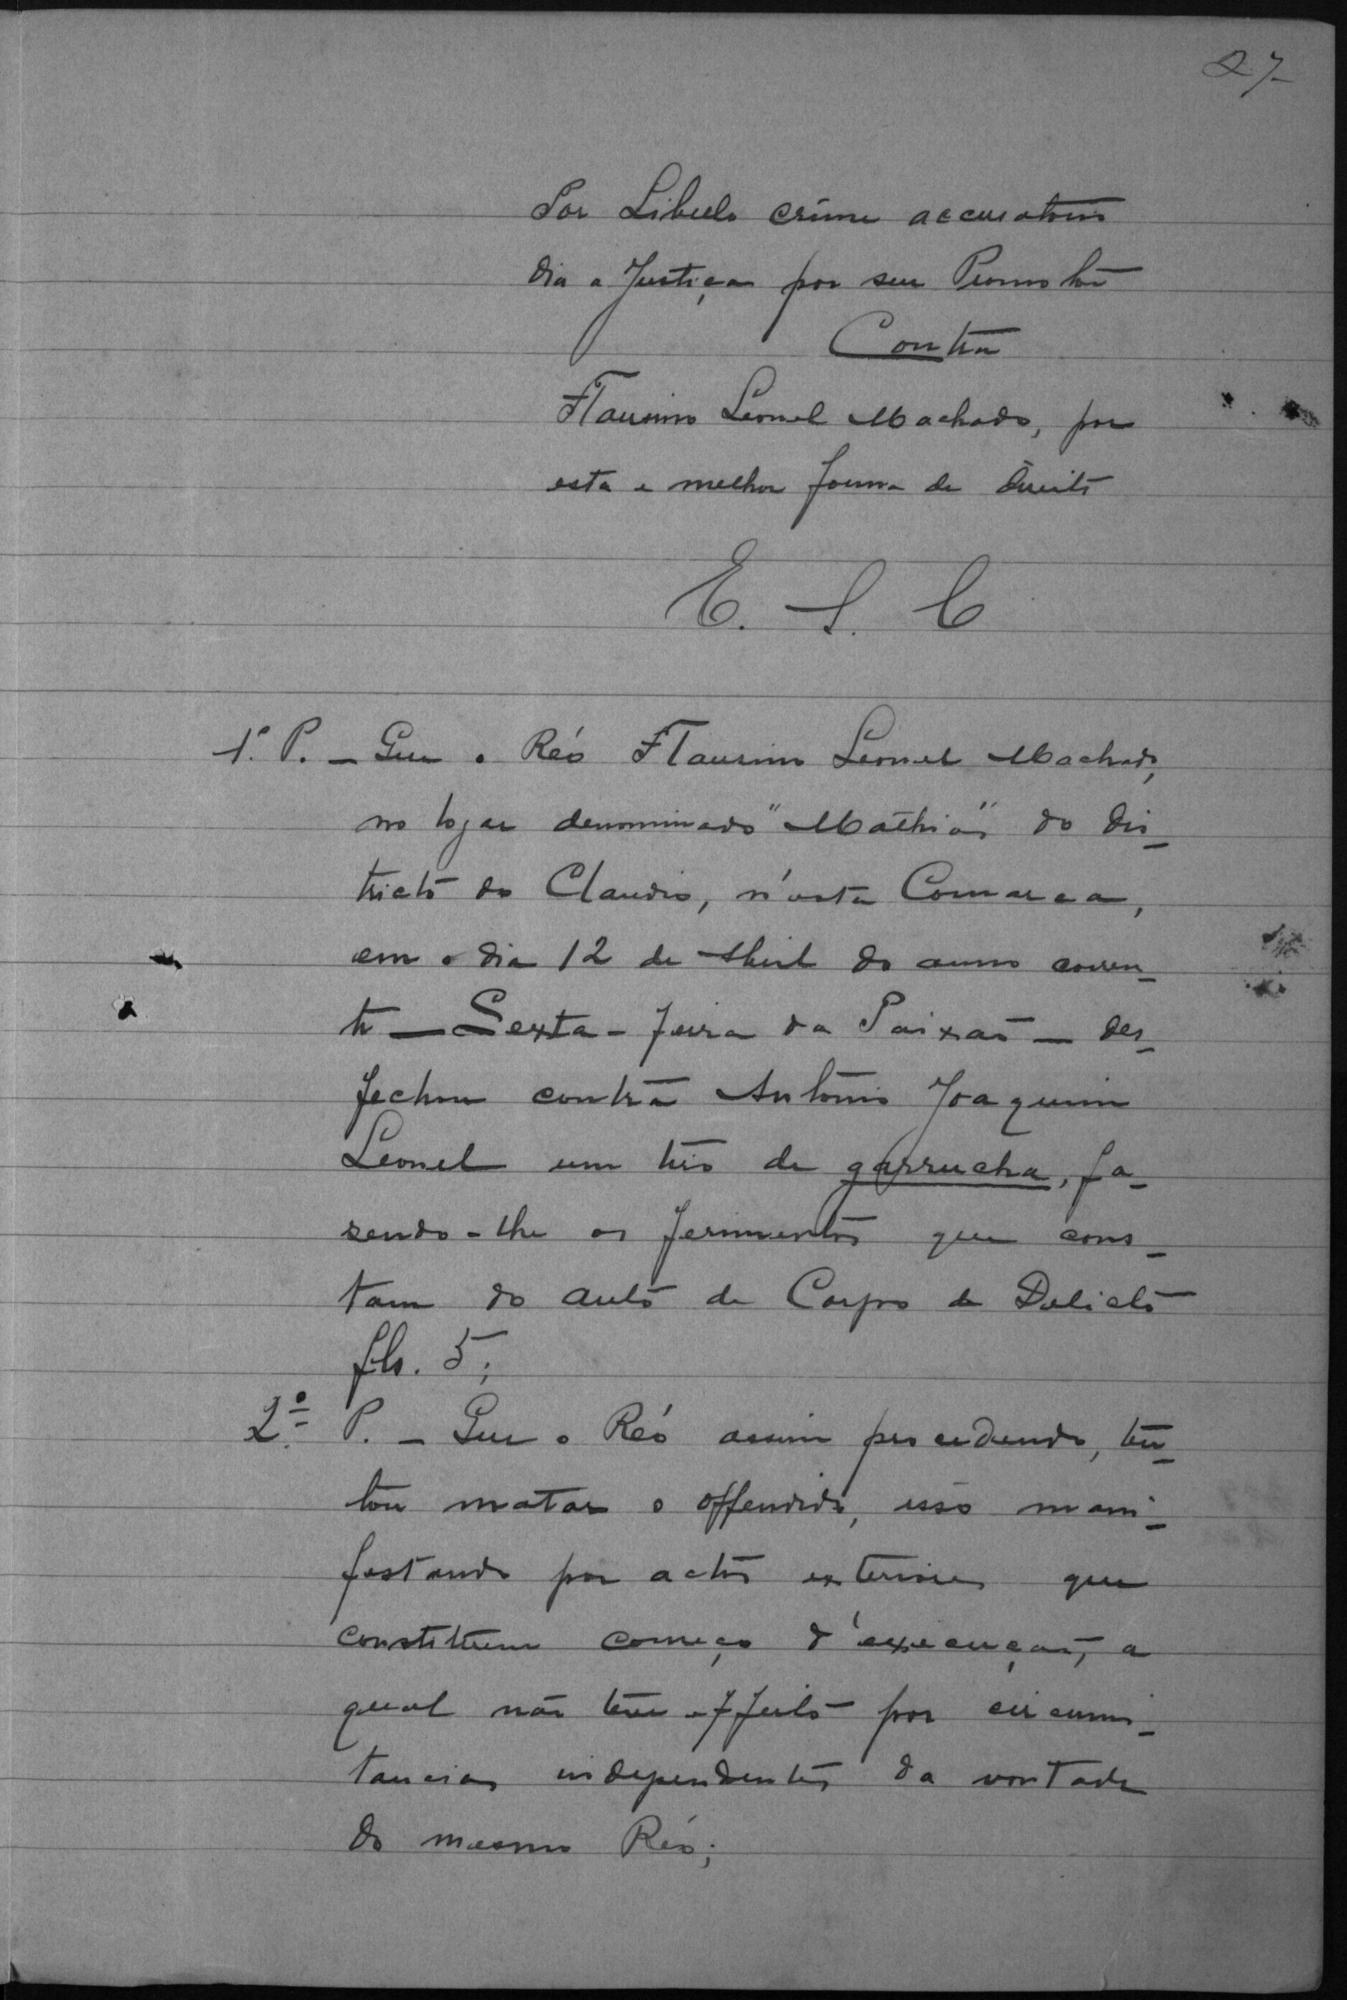 27
Por Libello crime accusatorio
dia a Justiça por seu Promotor
Contra
Flausino Leonel Machado, por
esta e melhor forma de direito
E. S. C
1º P. — Que o Réo Flausino Leonel Machado,
no logar denominado "Mathias" do dis-
tricto do Claudio, n'esta Comarca,
em o dia 12 de Abril do anno corren-
te — Sexta-feira da Paixaõ — des-
fechou contra Antonio Joaquim
Leonel um tiro de garrucha, fa-
sendo-lhe os ferimentos que cons-
tam do auto de Corpo de Delicto
fls. 5;
2º P. — Que o Réo assim procedendo, ten-
tou matar o offendido, isso mani-
festando por actos exteriores que
constituem começo d'execuçaõ, a
qual não teve effeito por circums-
tancias independentes da vontade
do mesmo Réo;